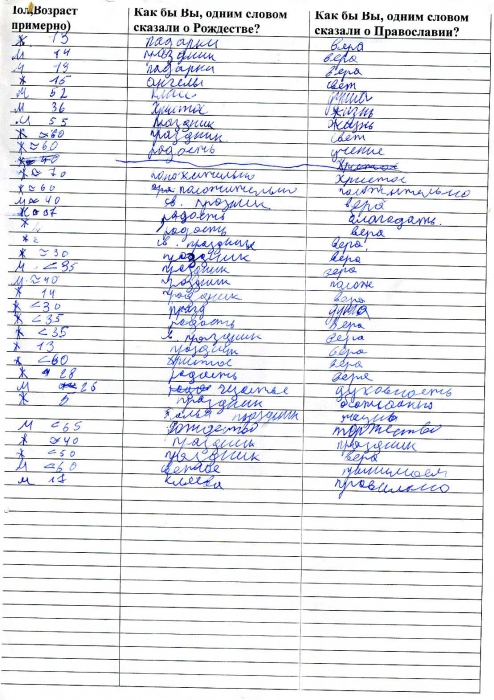 Пол, Возраст примерно) Как бы Вы, одним словом сказали о Рождестве? Как бы Вы, одним словом сказали о Православии?
Ж 13 подарки вера
М 14 праздник вера
19 подарки вера
Ж 15 ангелы свет
М 52
М 36 Христос жизнь
М 55 праздник жизнь
Ж ≈60 праздник свет
Ж ≈60 радость учение
Ж ≈70 положительно Христос
Ж ≈60 положительно положительно
М ≈40 св. праздник вера
≈37 радость благодать.
Ж радость вера
Ж праздник вера
Ж ≈30 праздник вера
М <35 праздник вера
М ≈40 праздник
Ж 14 праздник вера
Ж <30 празд душа
Ж <35 радость вера
Ж <35 праздник вера
Ж 13 праздник вера
Ж <60 Христос вера
Ж 28 радость вера
М 26 счастье духовность
Ж праздник
праздник
М <65 рождество торжество
Ж ≈40 праздник праздник
Ж <50 праздник вера
М <60 принимаем
М 17 клёво правильно